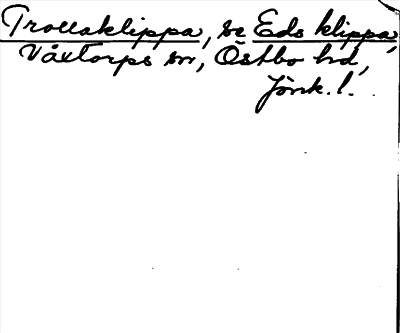 Trollaklippa, se Eds klippa,
Våxtorps sn, Östbo hd,
Jönk. l.